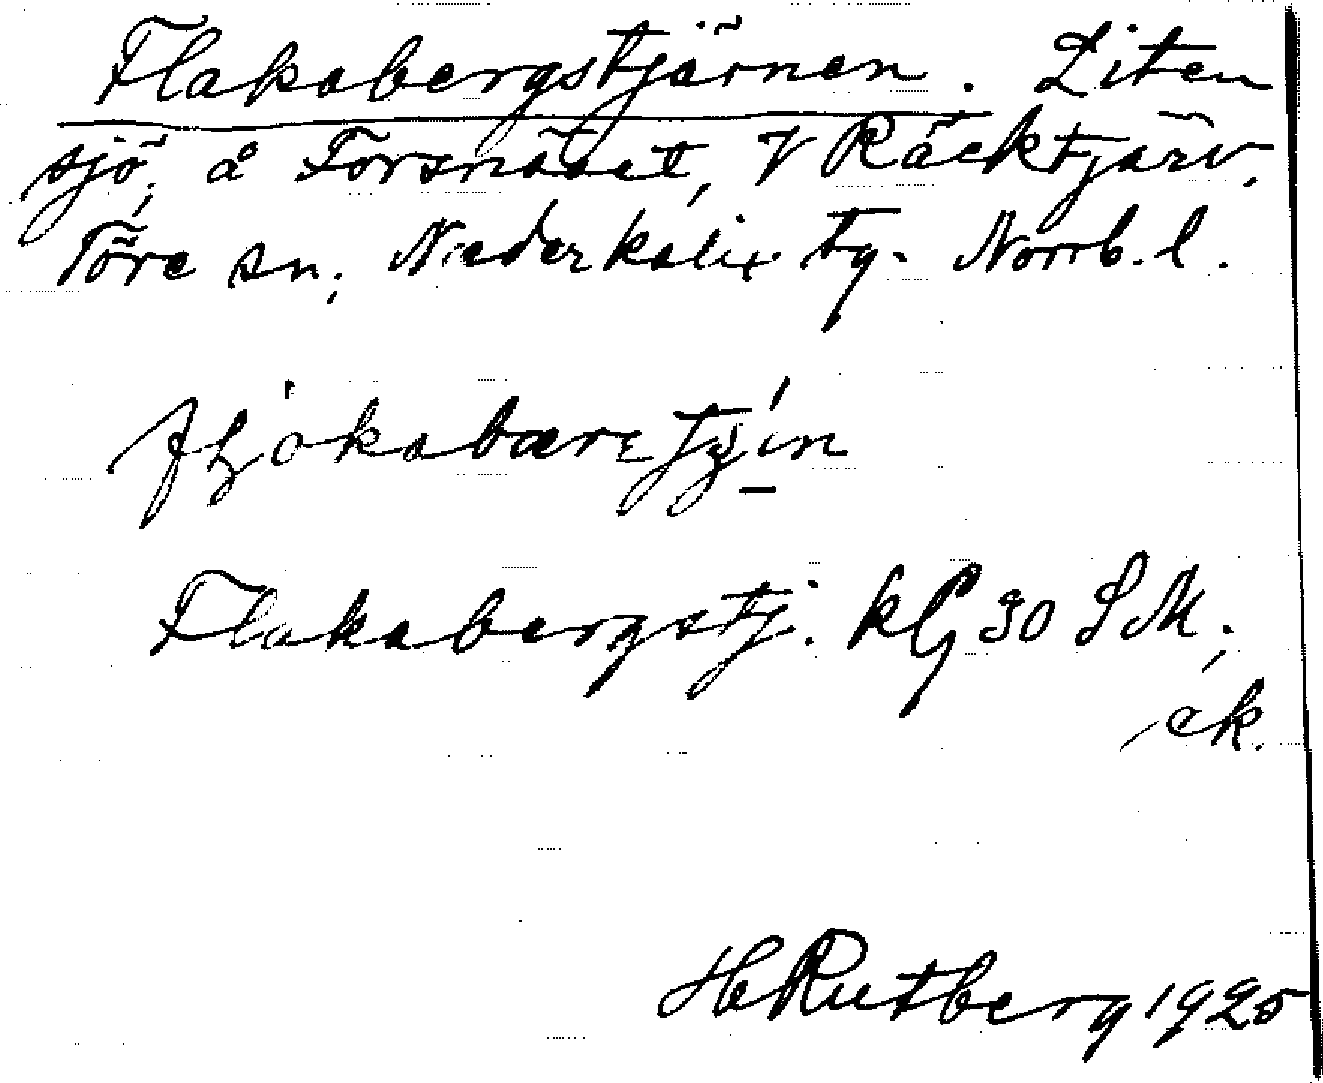 Flakabergstjärnen. Liten
sjö, å Forsnäset, V Räcktjärv,
Töre sn, Nederkalix tg. Norrb. l.
Flakabergstj. kG 30 SM;
ek.
H Rutberg 1925